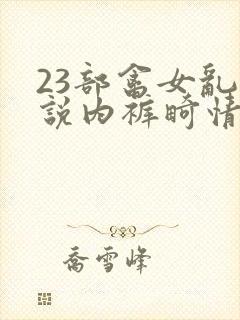 23部畲女亂
說内裤畸情
喬雪峰